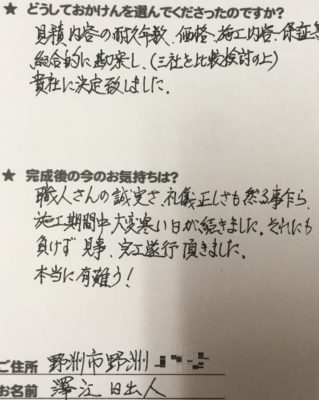 ★ どうしておかけんを選んでくださったのですか?
見積内容の耐久年数、価格、施工内容、保証等
総合的に勘案し、(三社と比較検討の上)
貴社に決定致しました。
★ 完成後の今のお気持ちは?
職人さんの誠実さ、礼儀正しさも然る事乍ら、
施工期間中大変寒い日が続きました。それにも
負けず 見事、完工遂行頂きました。
本当に有難う!
ご住所 野洲市野洲
お名前 澤江 日出人